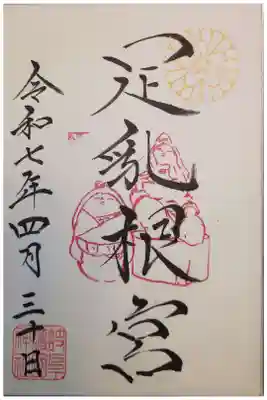 足乳根宮
令和七年四月三十日